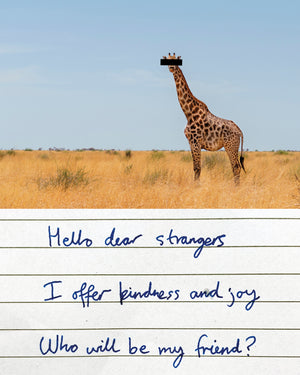 Hello dear strangers
I offer kindness and joy
Who will be my friend?